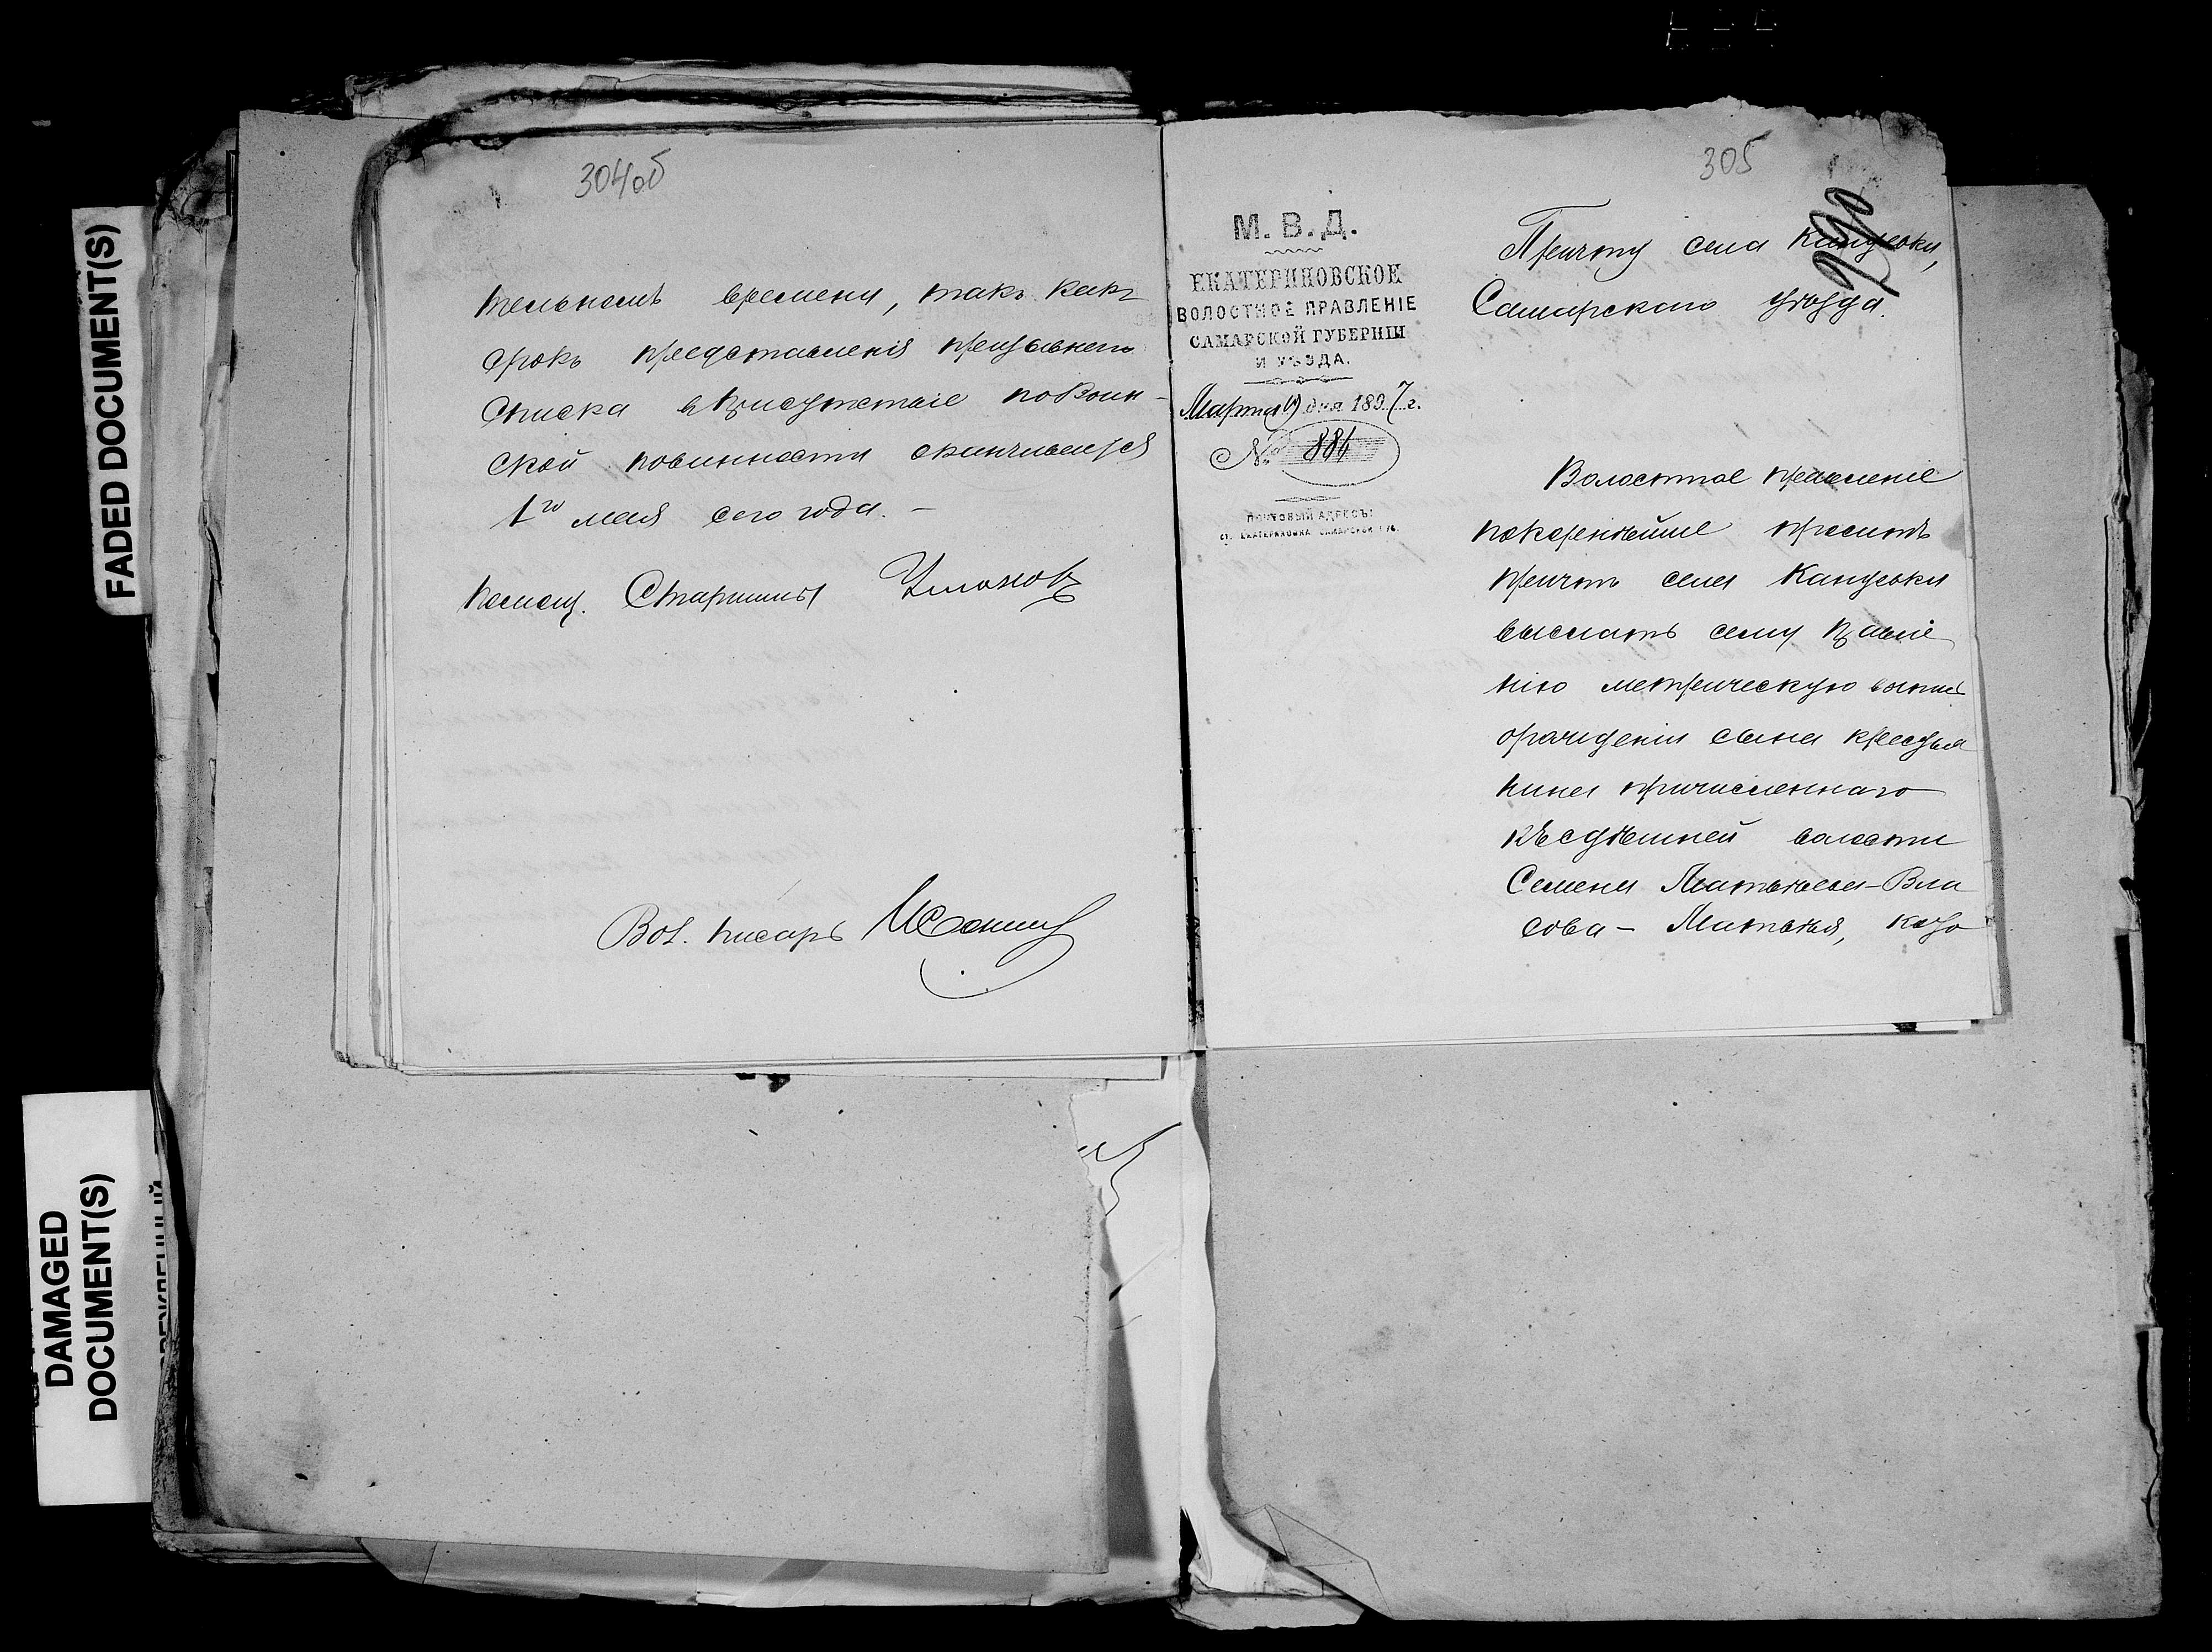 FADED DOCUMENT(S)
DAMAGED
DOCUMENT(S)
304 об
тельномъ времени, такъ какъ
срокъ представленія призывнаго
списка въ присутствіе по Воин-
ской повинности оканчивается
1го мая сего года. –
Помощ. Старшины
Вол. писарь
305
М. В. Д.
ЕКАТЕРИНОВСКОЕ
ВОЛОСТНОЕ ПРАВЛЕНІЕ
САМАРСКОЙ ГУБЕРНІИ
И УѢЗДА.
Марта 19 дня 1897 г.
№ 884
ПОЧТОВЫЙ АДРЕСЪ:
ст. ЕКАТЕРИНОВКА САМАРСКОЙ Г/б.
Причту села Кануевки,
Самарскаго уѣзда.
Волостное правленіе
покорнѣйше проситъ
причтъ села Кануевки
выслать сему правле
нію метрическую выпись
о рожденіи сына крестья
нина причисленнаго
къ здѣшней волости
Семена Матвѣева-Вла
сова – Матвѣя,